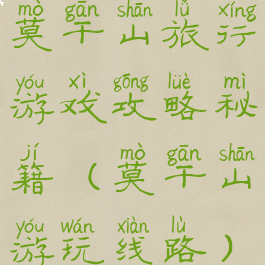 mò gān shān lǚ xíng
莫干山旅行
yóu xì gōng lüè mì
游戏攻略秘
jí mò gān shān
籍（莫干山
yóu wán xiàn lù
游玩线路）